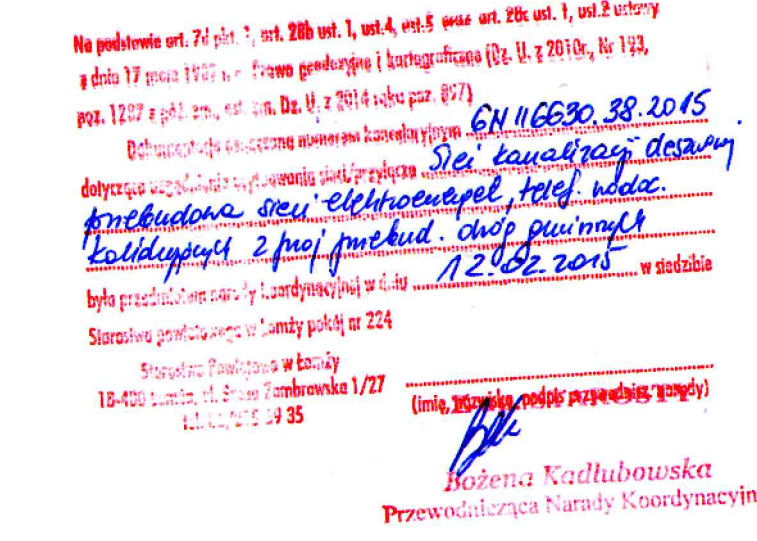 Na podstawie art. 7d pkt. 2, art. 28b ust. 1, ust.4, ust.5 oraz art. 28c ust. 1, ust.2 ustawy
z dnia 17 maja 1989 r. - Prawo geodezyjne i kartograficzne (Dz. U. z 2010r., Nr 193,
poz. 1287 z póź. zm., ost. zm. Dz. U. z 2014 roku poz. 897)
Dokumentacja oznaczona numerem kancelaryjnym GN II 6630.38.2015
dotycząca uzgodnienia usytuowania sieci/przyłącza Sieci kanalizacji deszczowej
przebudowa sieci elektroenerget, telef. wodoc.
kolidujących z proj przebud. dróg gminnych
była przedmiotem narady koordynacyjnej w dniu 12.02.2015 w siedzibie
Starostwa powiatowego w Łomży pokój nr 224
Starostwo Powiatowe w Łomży
18-400 Łomża, ul. Szosa Zambrowska 1/27
39 35
(imię, nazwisko, podpis przewodnicz. narady)
Bożena Kadłubowska
Przewodnicząca Narady Koordynacyjn